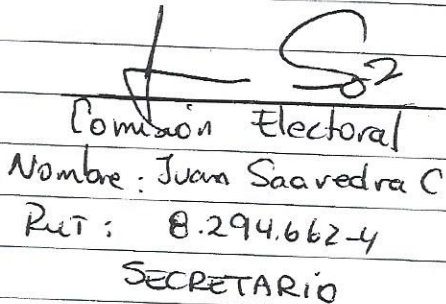 Comisión Electoral
Nombre: Juan Saavedra C
RuT: 8.294.662-4
SECRETARIO